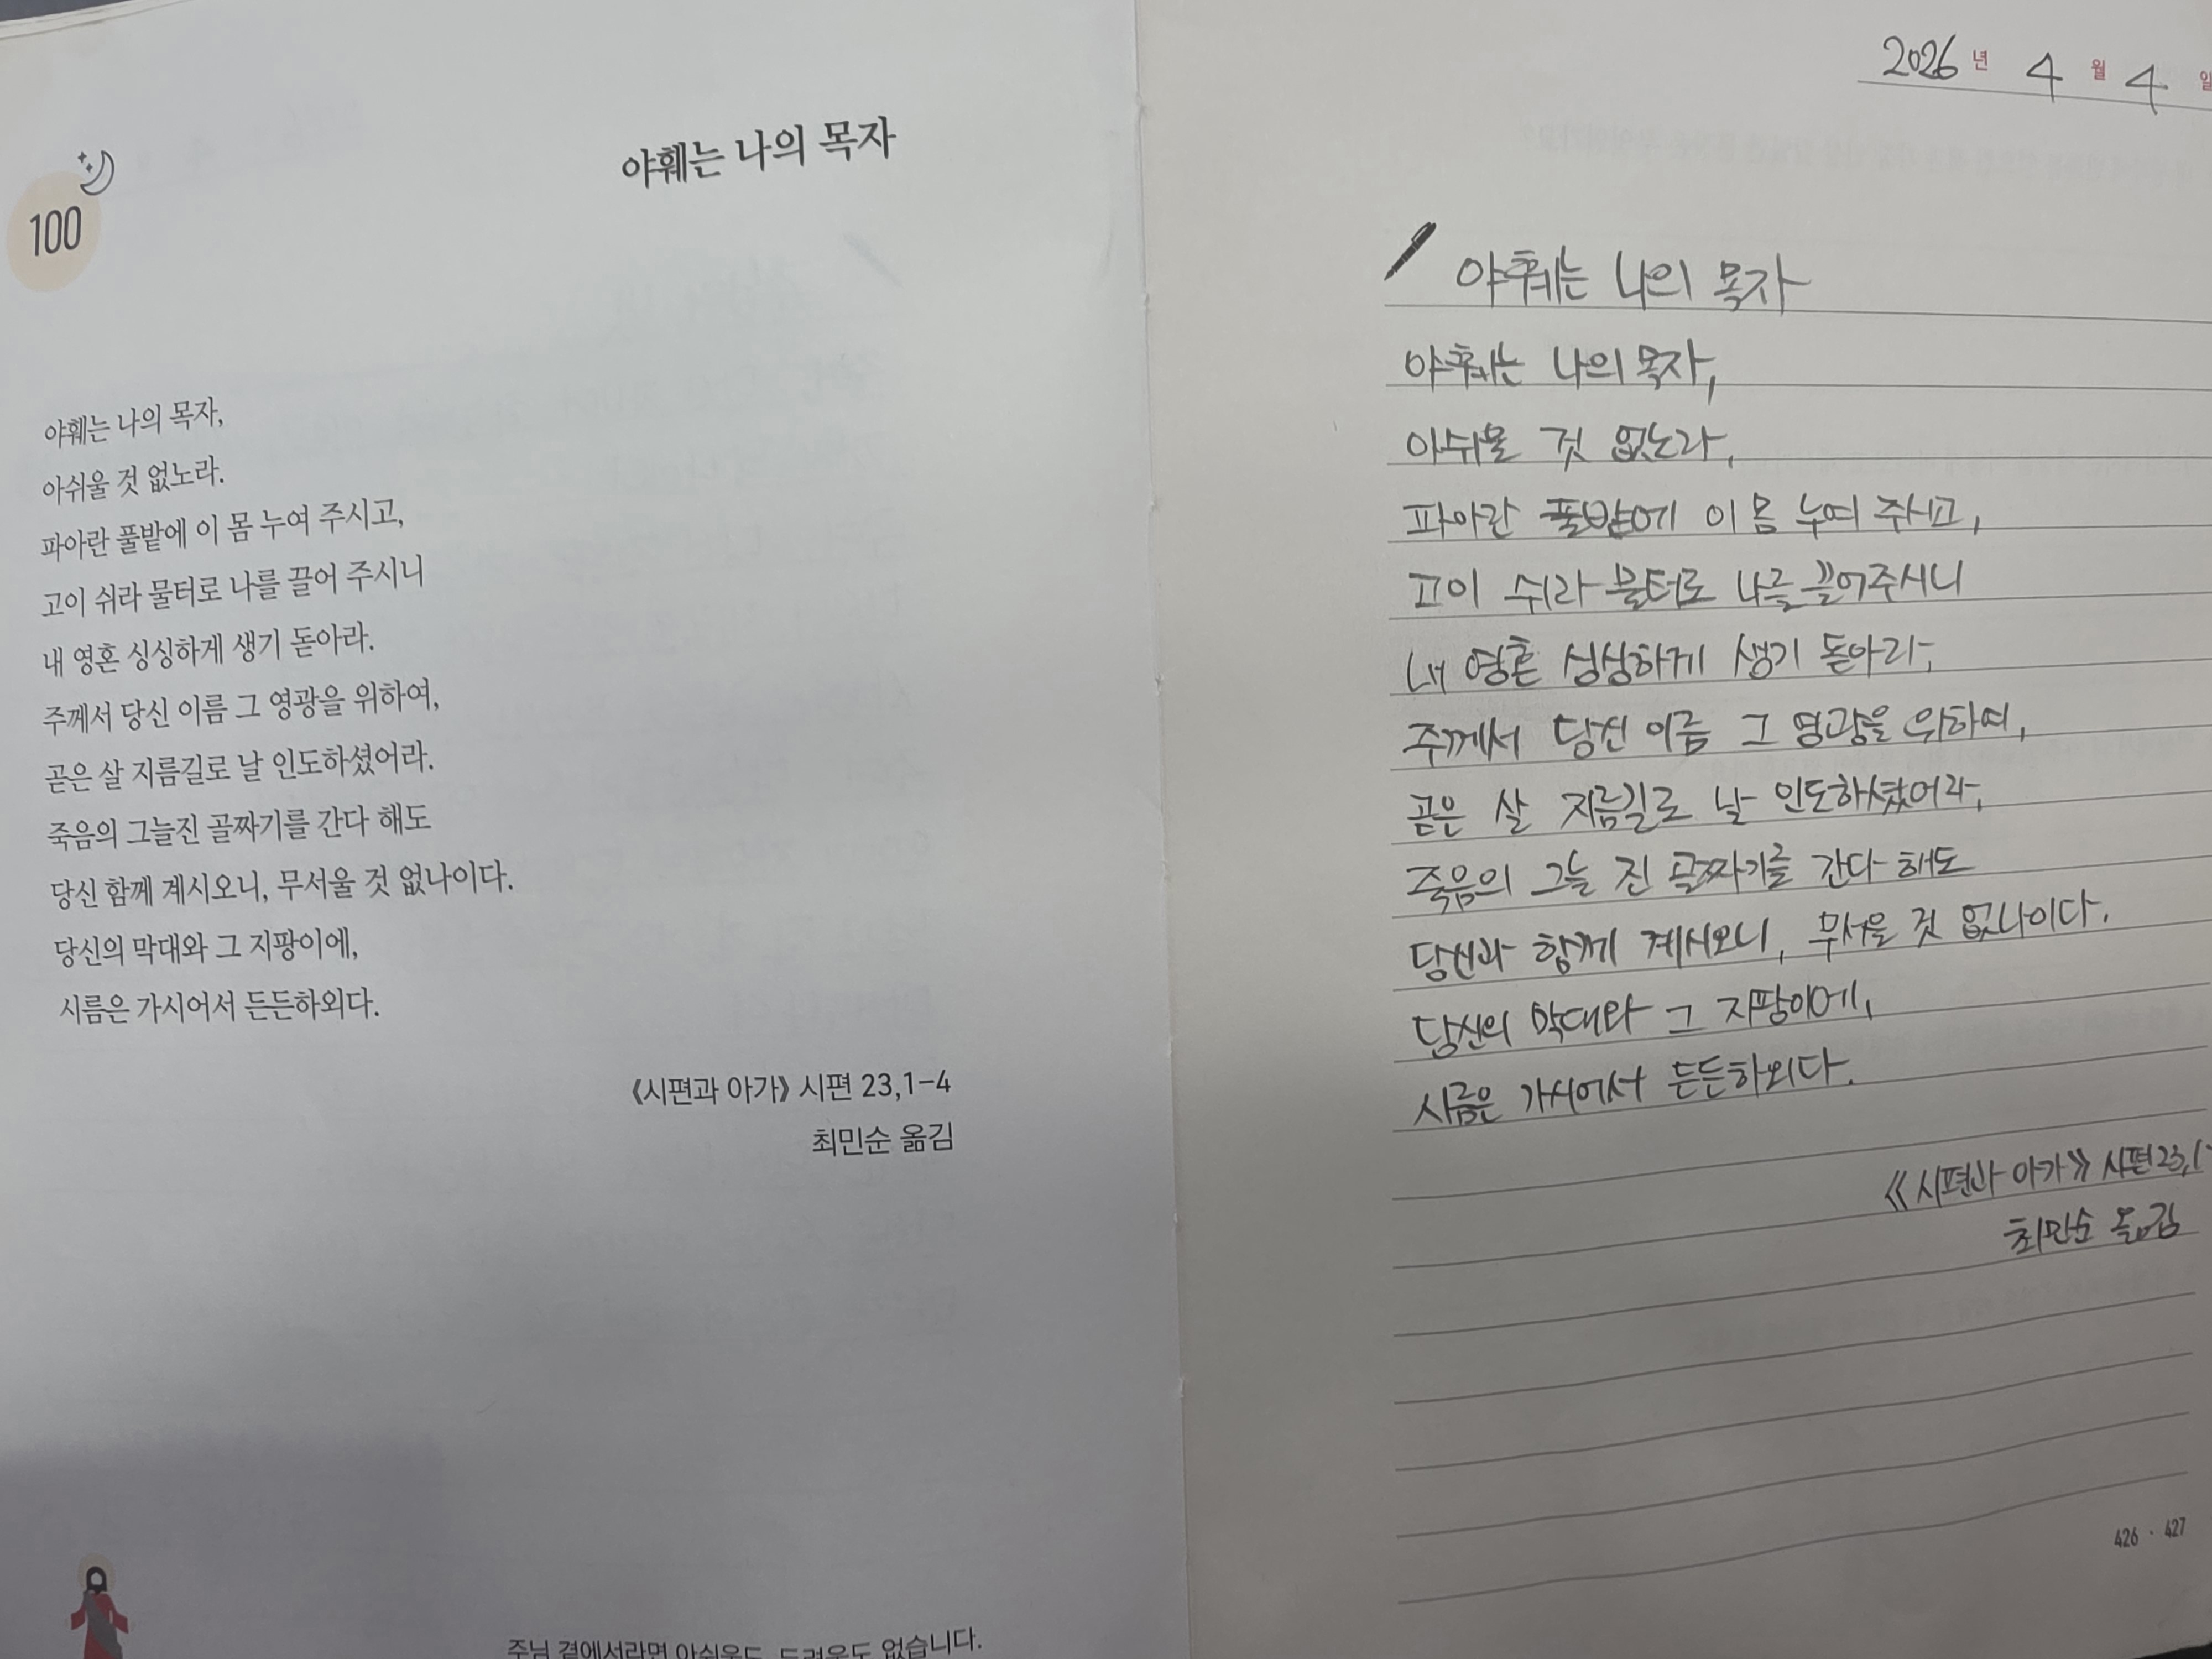 100
야훼는 나의 목자
야훼는 나의 목자,
아쉬울 것 없노라.
파아란 풀밭에 이 몸 누여 주시고,
고이 쉬라 물터로 나를 끌어 주시니
내 영혼 싱싱하게 생기 돋아라.
주께서 당신 이름 그 영광을 위하여,
곧은 살 지름길로 날 인도하셨어라.
죽음의 그늘진 골짜기를 간다 해도
당신 함께 계시오니, 무서울 것 없나이다.
당신의 막대와 그 지팡이에,
시름은 가시어서 든든하외다.
《시편과 아가》 시편 23,1-4
최민순 옮김
주님 곁에서라면 없습니다.
2026 년 4 월 4 일
야훼는 나의 목자
야훼는 나의 목자,
아쉬울 것 없노라.
파아란 풀밭에 이 몸 누여 주시고,
고이 쉬라 물터로 나를 끌어주시니
내 영혼 싱싱하게 생기 돋아라.
주께서 당신 이름 그 영광을 위하여,
곧은 살 지름길로 날 인도하셨어라.
죽음의 그늘 진 골짜기를 간다 해도
당신과 함께 계시오니, 무서울 것 없나이다.
당신의 막대와 그 지팡이에,
시름은 가시어서 든든하외다.
《시편과 아가》 시편 23,1-
최민순 옮김
426 · 427